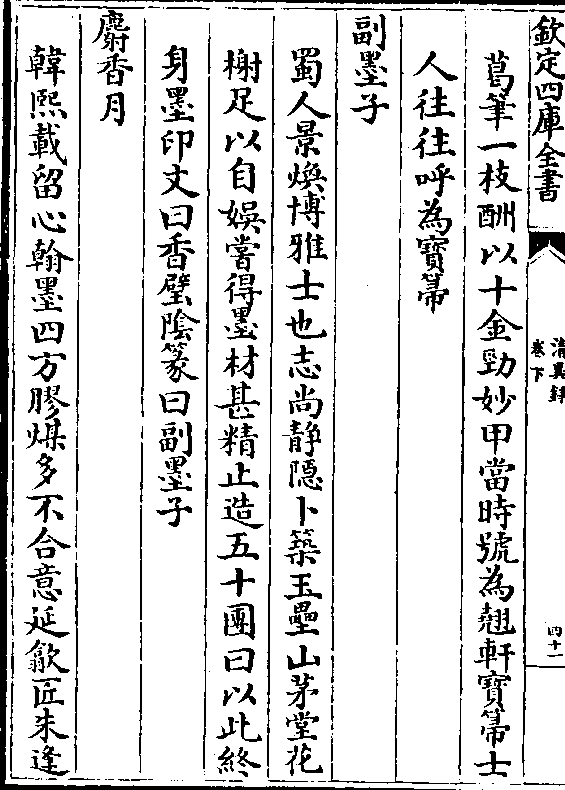 欽定四庫全書
清異録
卷下
四十一
葛筆一枝酬以十金勁妙甲當時號為翹軒寶箒士
人往往呼為寶箒
副墨子
蜀人景煥博雅士也志尚静隠卜築玉壘山茅堂花
榭足以自娯嘗得墨材甚精止造五十團曰以此終
身墨印文曰香璧隂篆曰副墨子
麝香月
韓熙載留心翰墨四方膠煤多不合意延歙匠朱逢